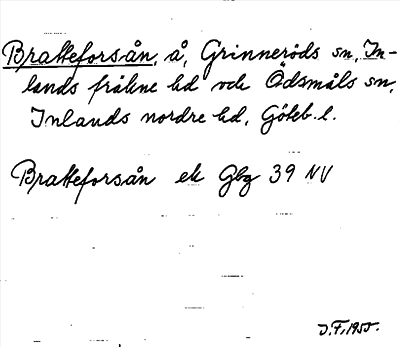 Bratteforsån, å, Grinneröds sn, In-
lands fräkne hd och Ödsmåls sn,
Inlands nordre hd, Göteb. l.
Bratteforsån ek Gbg 39 NV
J.F. 1955.